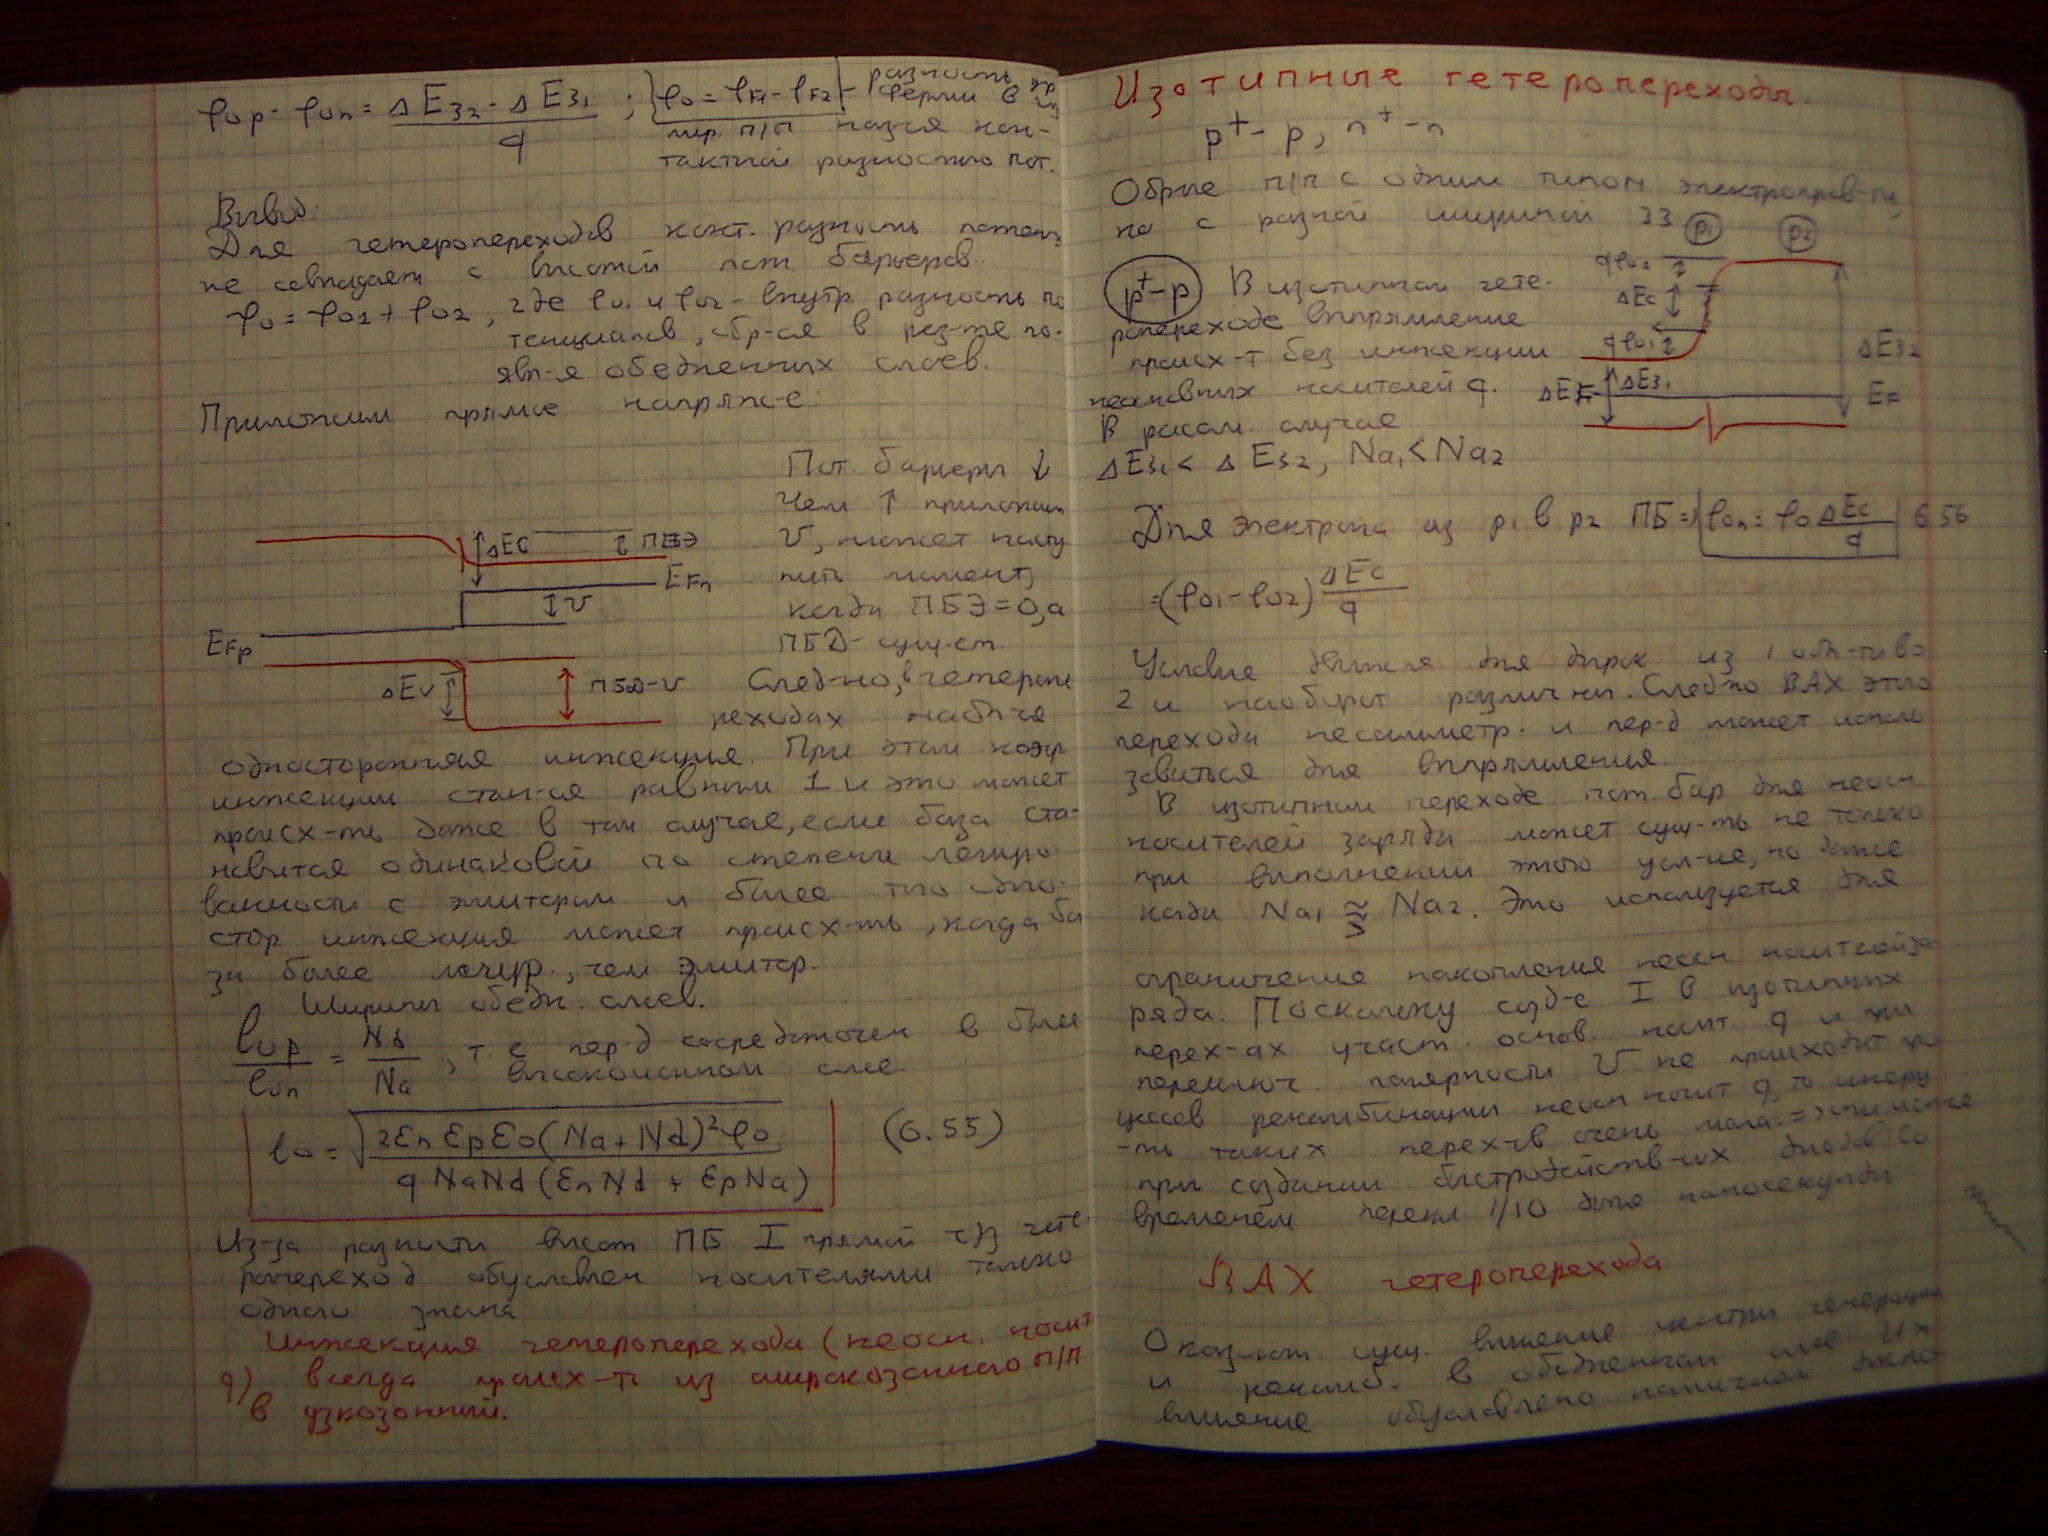 φop - φon = ΔEз2 - ΔEз1 / q ; φo = φF1 - φF2 - разность
ферми в
пир. п/п наз-ся кон-
тактной разностью пот.
Вывод:
Для гетеропереходов конт. разность потенц
не совпадает с высотой пот. барьеров.
φo = φo1 + φo2, где φo1 и φo2 - внутр разность по
тенциалов, обр-ся в рез-те по-
явл-я обедненных слоев.
Приложим прямое напряж-е:
Пот. барьеры ↓
Чем ↑ приложен
U, может насту
пить момент,
когда ПБЭ = 0, а
ПБД - сущ-ет.
ΔEc ПБЭ
EFn
U
EFp
ΔEv ПБД-U
След-но, в гетеропе
реходах наб-ся
односторонняя инжекция. При этом коэф
инжекции стан-ся равным 1 и это может
происх-ть даже в том случае, если база ста-
новится одинаковой по степени легиро
ванности с эмитером и более того одно-
стор инжекция может происх-ть, когда ба
за более легир, чем эмитер.
Ширины обедн. слоев.
lop / lon = Nd / Na, т.е пер-д сосредоточен в более
высокоомном слое
lo = √ 2εn εp εo (Na + Nd)² φo / q Na Nd (εn Nd + εp Na) (6.55)
Из-за разности высот ПБ I прямой ч/з гете-
ропереход обусловлен носителями только
одного знака
Инжекция гетероперехода (неосн. носит
q) всегда происх-ть из широкозонного п/п
в узкозонный.
Изотипные гетеропереходы.
p⁺ - p, n⁺ - n
Обр-ые п/п с одним типом электропров-ти,
но с разной шириной ЗЗ
p1 p2
p⁺-p В изотипном гете-
ропереходе выпрямление
происх-т без инжекции
неосновных носителей q.
В рассм. случае
ΔEз1 < ΔEз2, Na1 < Na2
qφo2
ΔEc
qφo1
ΔEз1
ΔEз2
EF
Для электрона из p1 в p2 ПБ => φon = φo ΔEc / q 6 56
= (φo1 - φo2) ΔEc / q
Условие движ-я для дырок из 1 обл-ти во
2 и наоборот различны. След-но ВАХ этого
перехода несимметр. и пер-д может исполь
зоваться для выпрямления.
В изотипном переходе пот. бар для неосн
носителей заряда может сущ-ть не только
при выполнении этого усл-ие, но даже
когда Na1 ≳ Na2. Это используется для
ограничение накопления неосн носителей за-
ряда. Поскольку созд-е I в изотипных
перех-ах участ. основ. носит q и при
переключ. полярности U не происходит про
цессов рекомбинации неосн носит q, то инерц
-ть таких перех-ов очень мала. =>
при создании быстродейств-их диодов со
временем перекл 1/10 доля наносекунды
ВАХ гетероперехода
Оказ-ют сущ. влияние центры генерации
и рекомб. в обедненном слое. Их
влияние обусловлено наличием